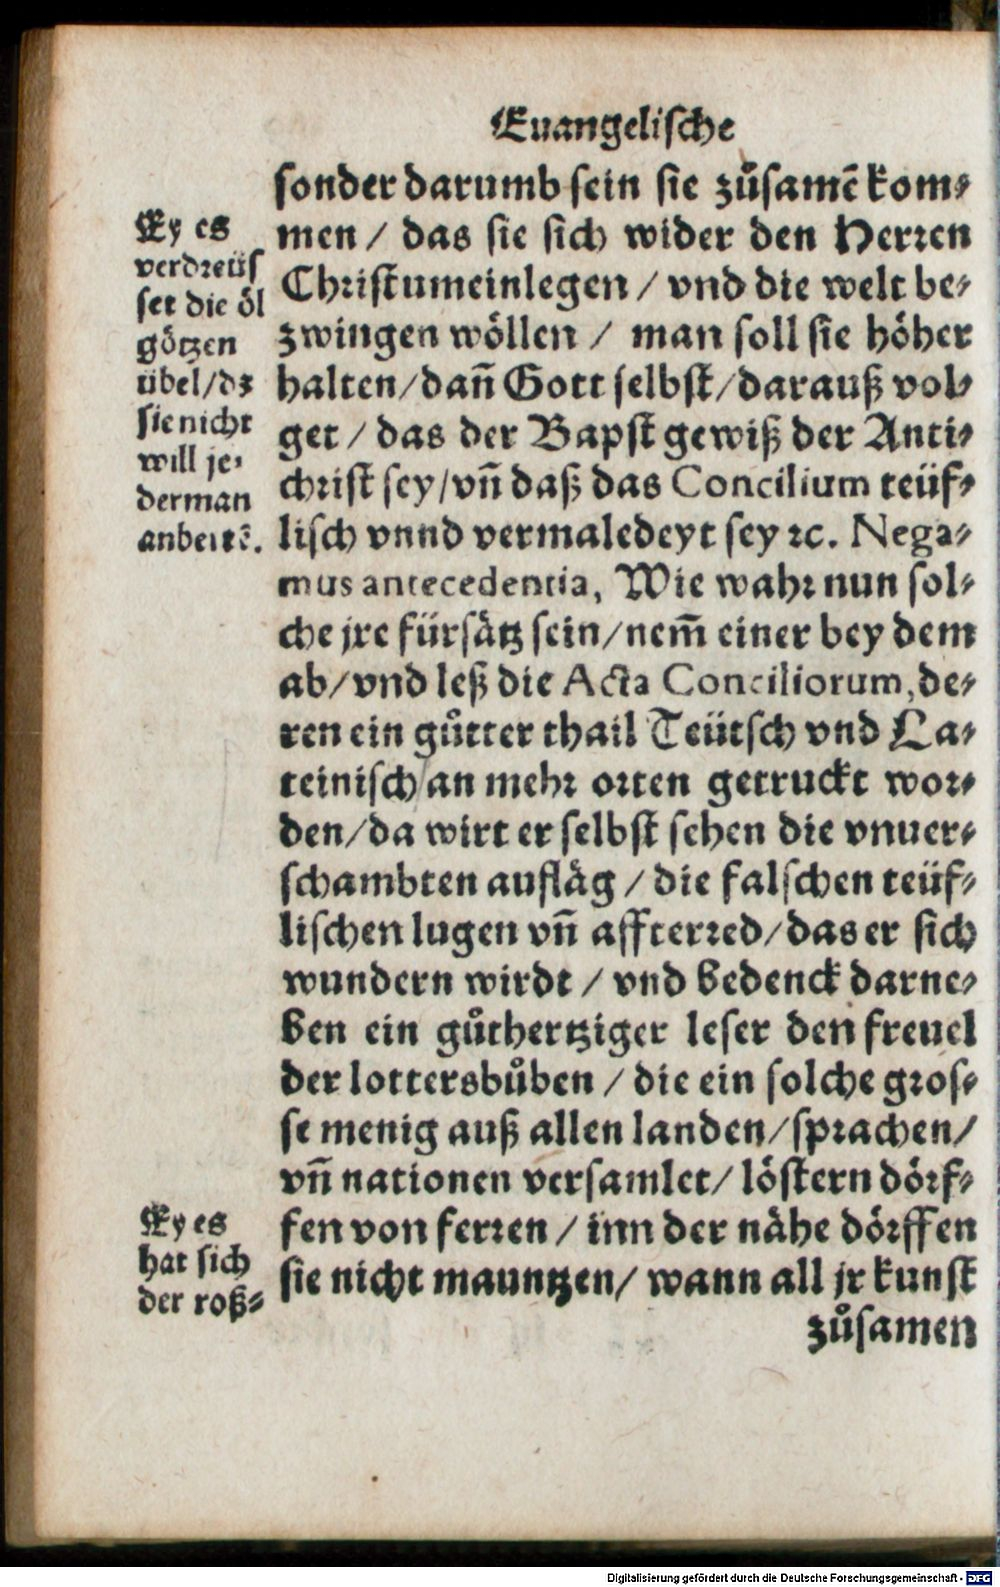 Euangelische
sonder darumb sein sie zůsamē kom⸗
men / das sie sich wider den Herren
Christum einlegen / vnd die welt be⸗
zwingen wöllen / man soll sie höher
halten / dañ Gott selbst / darauß vol⸗
get / das der Bapst gewiß der Anti⸗
christ sey / vñ daß das Concilium teüf⸗
lisch vnnd vermaledeyt sey ꝛc. Nega⸗
mus antecedentia, Wie wahr nun sol⸗
che jre fürsätz sein / nem̃ einer bey dem
ab / vnd leß die Acta Conciliorum, de⸗
ren ein gůtter thail Teütsch vnd La⸗
teinisch an mehr orten getruckt wor⸗
den / da wirt er selbst sehen die vnuer⸗
schambten aufläg / die falschen teüf⸗
lischen lugen vñ affterred / das er sich
wundern wirdt / vnd bedenck darne⸗
ben ein gůthertziger leser den freuel
der lottersbůben / die ein solche gros⸗
se menig auß allen landen / sprachen /
vñ nationen versamlet / löstern dörf⸗
fen von ferren / inn der nähe dörffen
sie nicht mauntzen / wann all jr kunst
zůsamen
Ey es
verdreüs
set die öl
götzen
übel / dz
sie nicht
will je⸗
derman
anbeitē.
Ey es
hat sich
der roß⸗
Digitalisierung gefördert durch die Deutsche Forschungsgemeinschaft - DFG